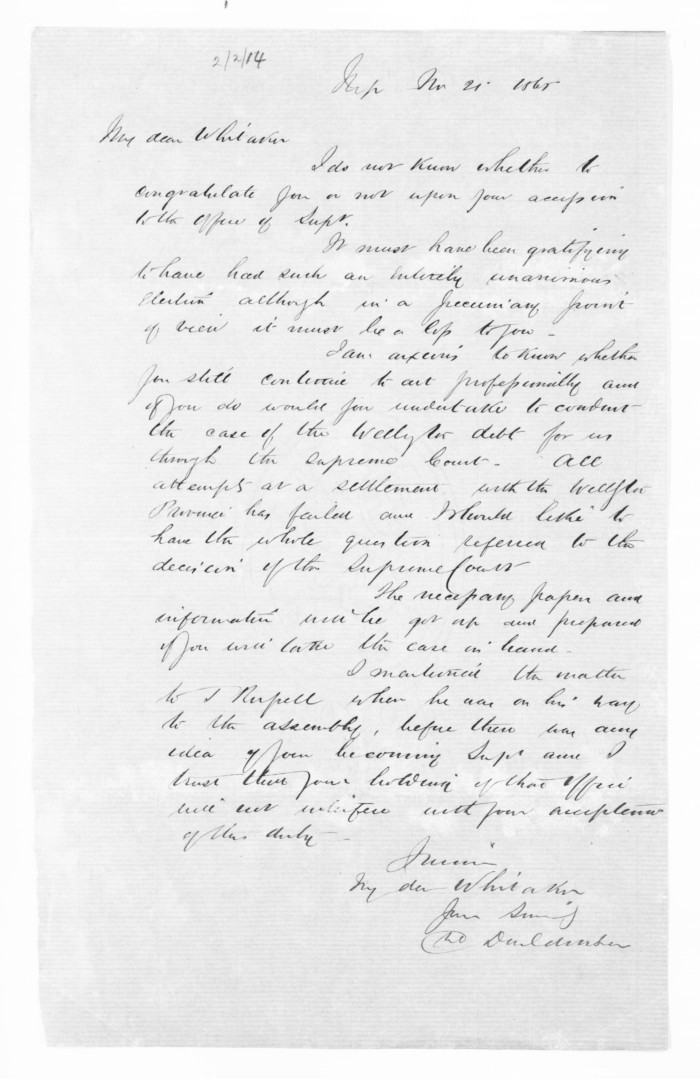 2/2/14
Nov 21 1865
My dear Whitaker
I do not know whether to
congratulate you or not upon your accession
to the office of Supt.
It must have been gratifying
to have had such an entirely unanimous
election although in a pecuniary point
of view it must be a loss to you -
I am anxious to know whether
you still continue to act professionally and
if you do would you undertake to conduct
the case of the Wellgton debt for us
through the Supreme Court - All
attempts at a settlement with the Wellgton
Province has failed and I should like to
have the whole question referred to the
decision of the Supreme Court
The necessary papers and
information will be got up and prepared
if you will take the case in hand -
I mentioned the matter
to T Russell when he was on his way
to the assembly, before there was any
idea of your becoming Supt and I
trust that your holding of that office
will not interfere with your acceptance
of this duty -
I remain
My dear Whitaker
Yours Sincely